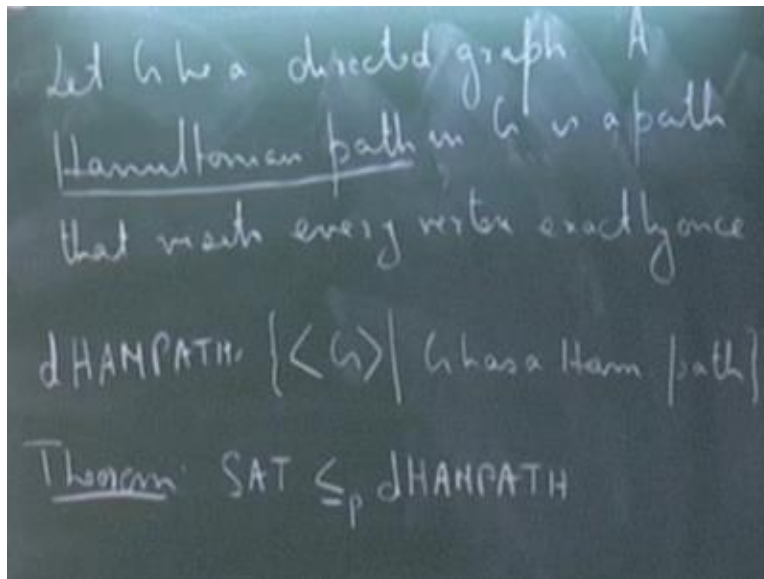 Let G be a directed graph A
Hamiltonian path in G is a path
that visits every vertex exactly once
dHAMPATH = {<G>| G has a Ham path}
Theorem: SAT ≤p dHAMPATH